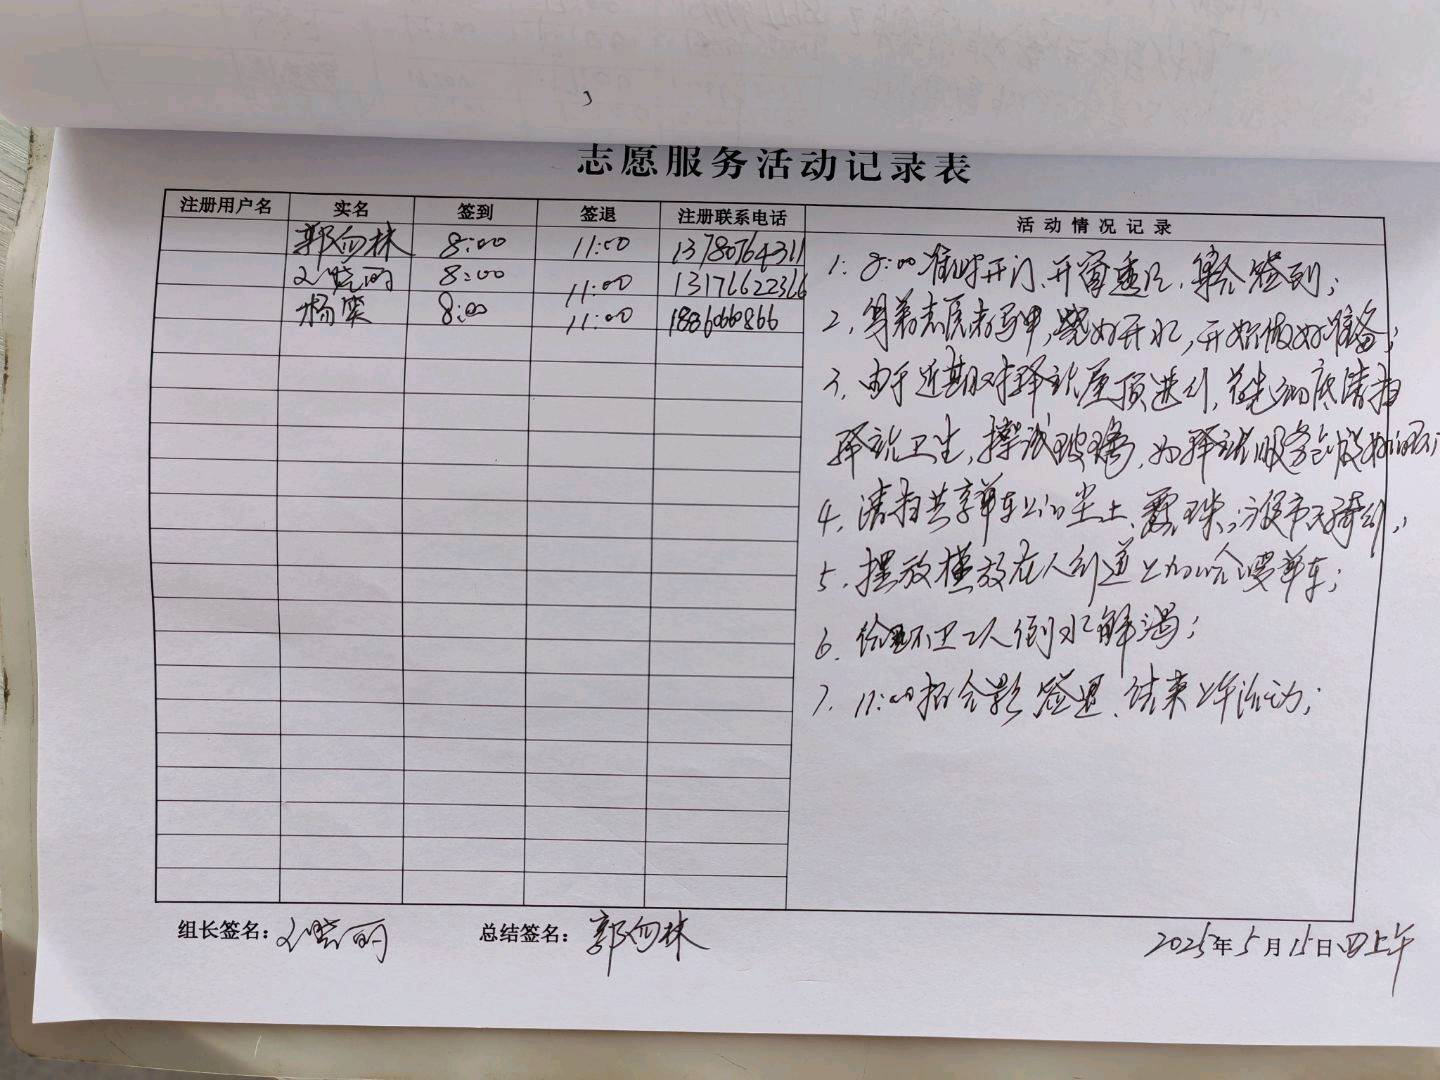 志愿服务活动记录表
注册用户名 实名 签到 签退 注册联系电话 活动情况记录
郭向林 8:00 11:00 13780764311
晓丽 8:00 11:00 13176622366
杨 8:00 11:00 18860660866
1. 8:00准时开门、开窗透风,集合签到;
2, 穿着志愿者马甲,烧好开水,开始做好准备;
3, 由于近期对驿站屋顶进行,首先彻底清扫
驿站卫生,擦试玻璃,为驿站服务
4, 清扫共享单车上的尘土、露珠,方便市民骑行;
5, 摆放横放在人行道上的哈啰单车;
6. 给环卫工人倒水解渴;
7. 11:00拍合影 签退、结束上午活动;
组长签名: 晓丽 总结签名: 郭向林
2025年5月15日 四上午